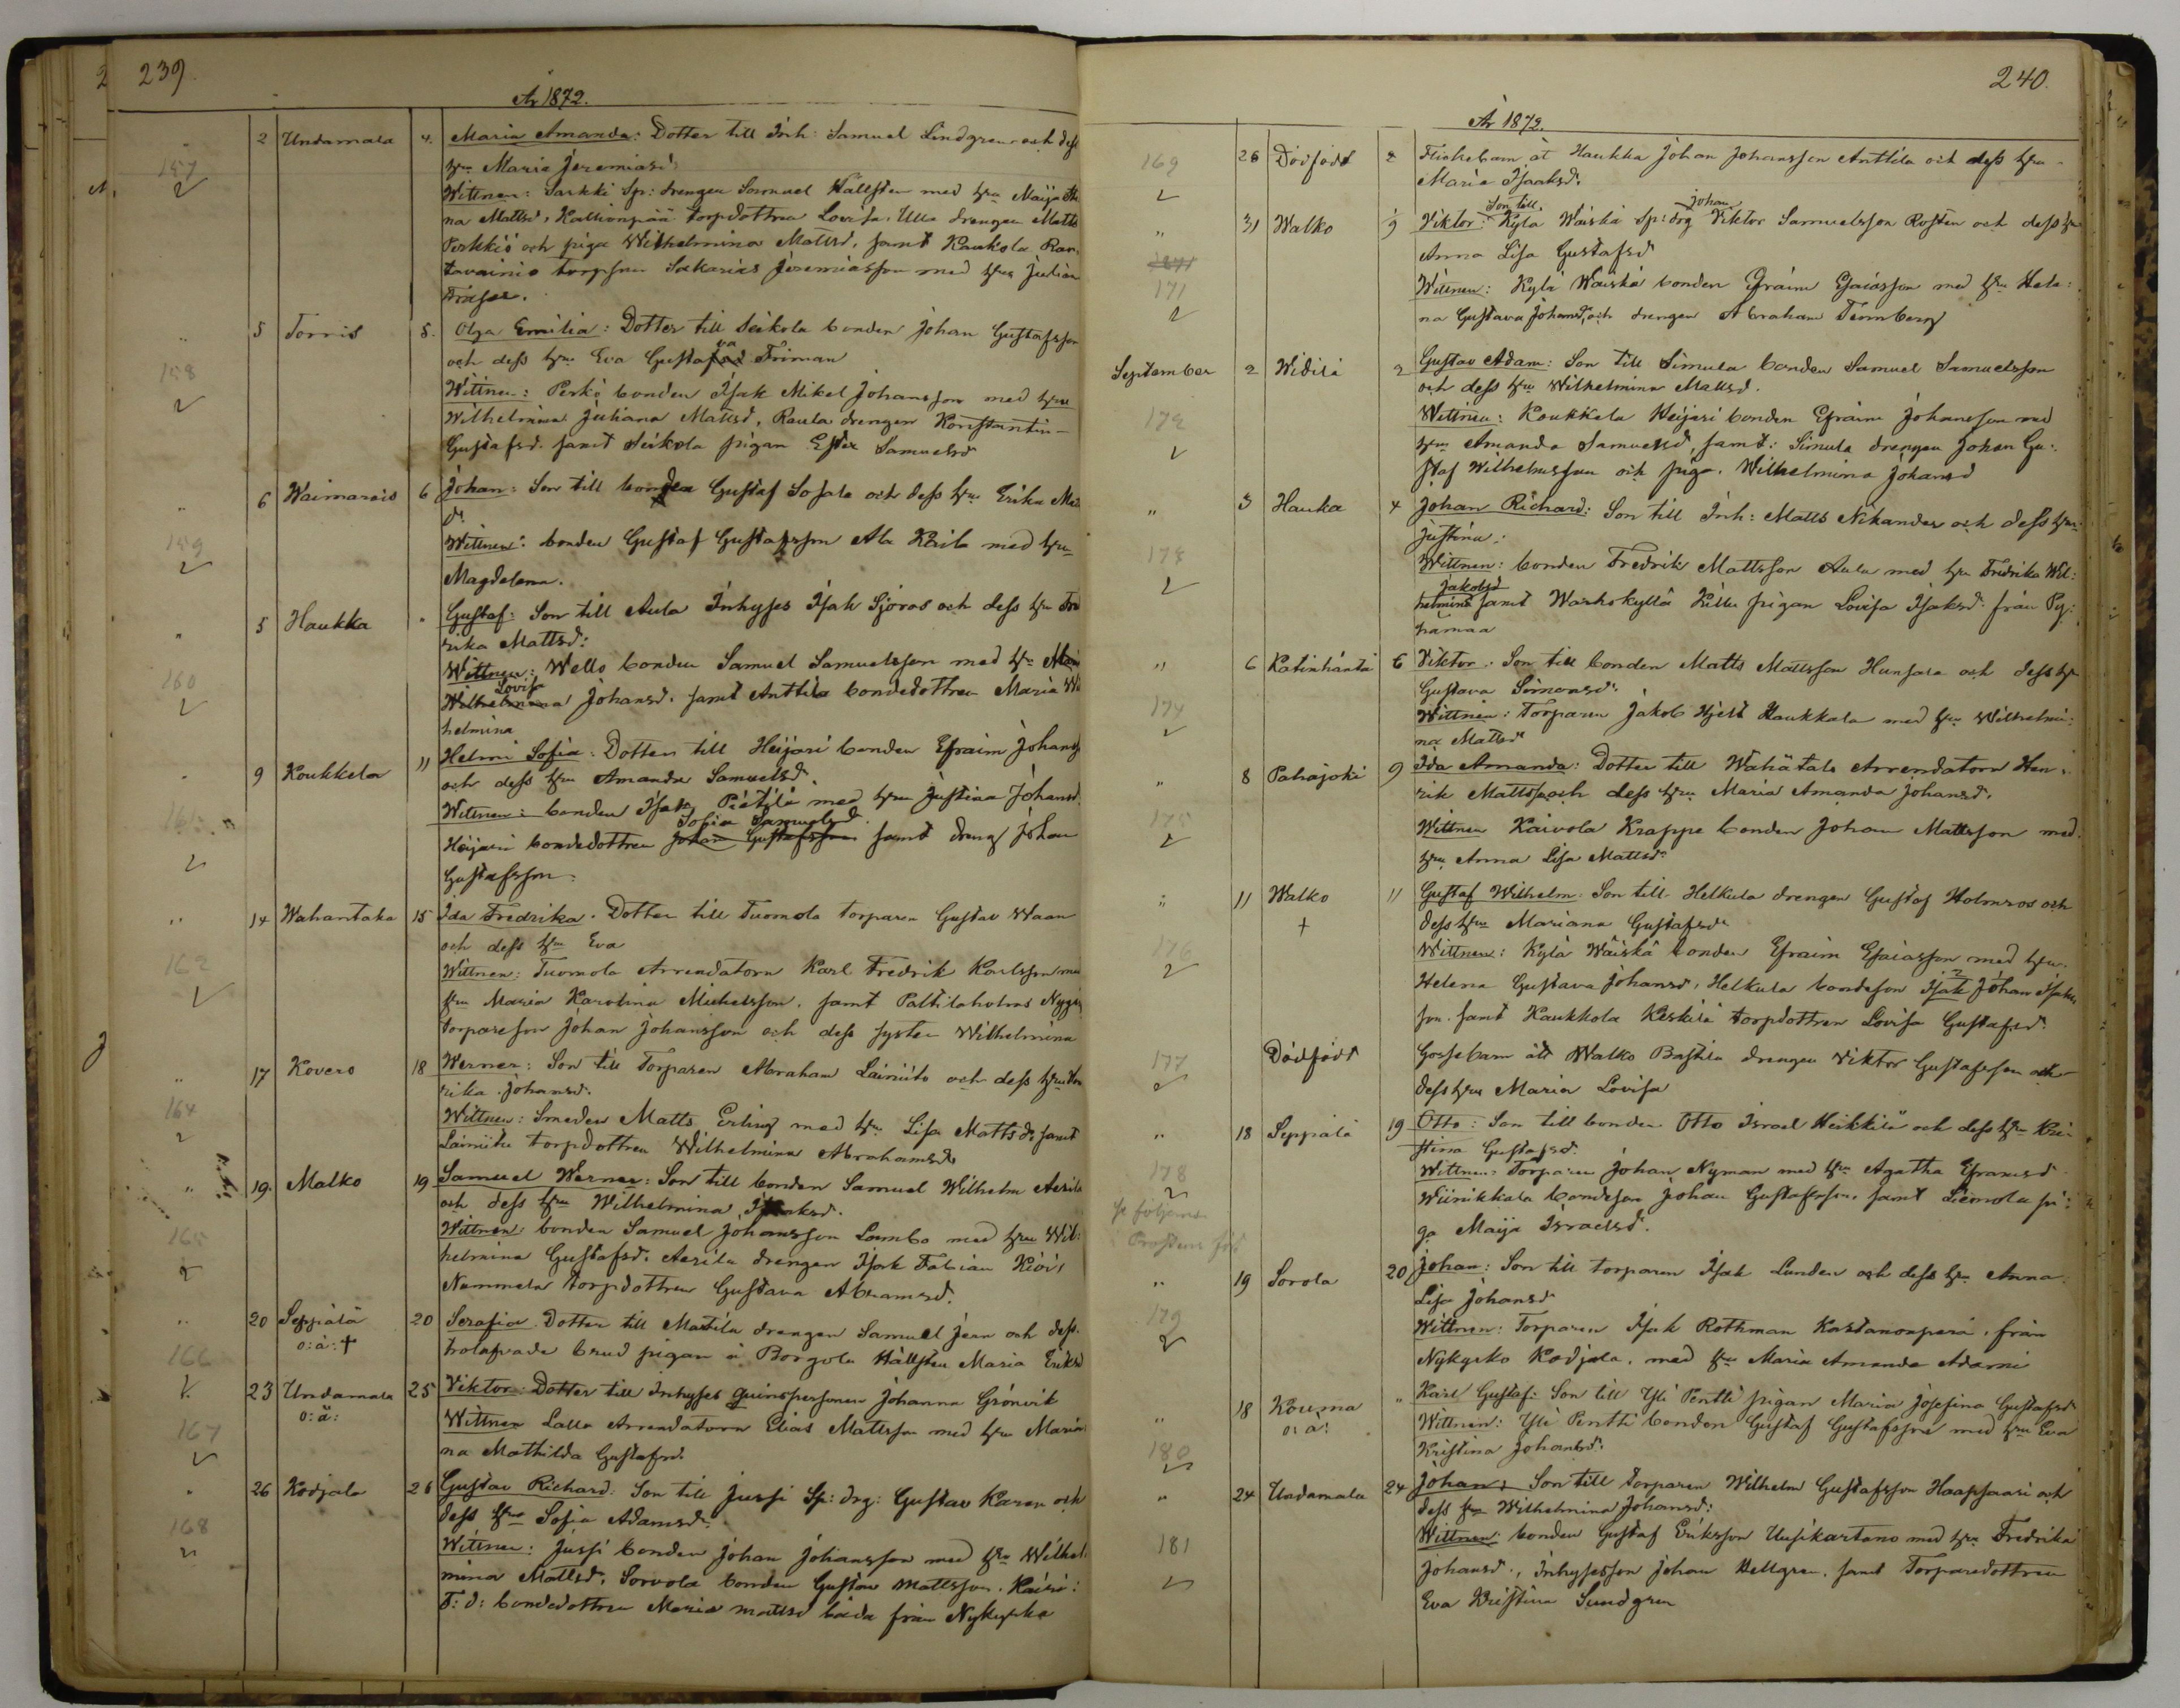 239.
År 1872.
157 2 Undamala 4. Maria Amanda: Dotter till Inh: Samuel Lindgren och dess
hru Maria Jeremiasd.
Wittnen: Sarkki Sp: drengen Samuel Hällsten med hru Maija
na Mattsd, Kallionpää torpdottren Lovisa Ulla drengen Matts
Perkkiö och piga Wilhelmina Mattsd, samt Kaukola Ran
tavainio torpsson Sakarias Jeremiasson med hru Julian
158 " 5 Torris 5. Olga Emilia: Dotter till Seikola bonden Johan Gustafsson
och dess hru Eva Gustava Friman
Wittnen: Perkö bonden Isak Mikel Johansson med hru
Wilhelmina Juliana Mattsd, Raula drengen Konstantin
Gustafsd. samt Seikola pigan Ester Samuelsd
159 " 6 Waimarais 6 Johan: Son till bonden Gustaf Sofala och dess hru Erika
d.
Wittnen: bonden Gustaf Gustafsson Ala Kaila med hru
Magdalena.
160 " 5 Haukka " Gustaf: Son till Aula Inhyses Isak Sjöros och dess hru Fred
rika Mattsd:
Wittnen: Wello bonden Samuel Samuelsson med hru
Lovisa
Wilhelmina Johansd. samt Anttila bondedottren Maria Wil
helmina
161 " 9 Koukkela 11 Helmi Sofia: Dotter till Heijari bonden Efraim Johanss
och dess hru Amanda Samuelsd.
Wittnen: bonden Isak Pietilä med hru Justina Johansd.
Sofia Samuelsd
Heijari bondedottren Johan Gustafsson samt dreng Johan
Gustafsson.
162 " 14 Wahantaka 15 Ida Fredrika. Dotter till Tuomola torparen Gustav Waan
och dess hru Eva
Wittnen: Tuomola Arrendatorn Karl Fredrik Karlsson med
hru Maria Karolina Michelsson. samt Palttilaholms Nygin
torpareson Johan Johansson och dess syster Wilhelmina
164 " 17 Kovero 18 Werner: Son till Torparen Abraham Lainiito och dess hru
rika Johansd.
Wittnen: Smeden Matts Erling med hru Lisa Mattsd: samt
Lainiito torpdottren Wilhelmina Abrahamsd
165 " 19. Malko 19 Samuel Werner: Son till bonden Samuel Wilhelm Aerila
och dess hru Wilhelmina Isaksd.
Wittnen: bonden Samuel Johansson Lambo med hru Wil:
helmina Gustafsd. Aerila drengen Isak Fabian Kivi,
Nummela torpdottren Gustava Abramsd.
166 " 20 Seppälä 20 Serafia Dotter till Mattila drengen Samuel Jern och dess
o: ä: † trolofvade brud pigan å Borgola Hällsten Maria Eriksd
167 23 Undamala 25 Viktor: Dotter till Inhyses qvinspersonen Johanna Grönvik
o: ä: Wittnen Lalla Arrendatorn Elias Mattsson med hru Maria
na Mathilda Gustafsd.
168 " 26 Kodjala 26 Gustav Richard: Son till Jussi Sp: drg: Gustav Karen och
dess hru Sofia Adamsd.
Wittnen: Jussi bonden Johan Johansson med hru Wilhel:
mina Mattsd, Sorvola bonden Gustav Mattsson. Kaisi:
T: d: bondedottren Maria Mattsd båda från Nykyrka
240.
År 1872.
169 26 Dödfödt 2 Flickebarn åt Haukka Johan Johansson Anttila och dess hru
Maria Isaaksd.
" 31 Walko Viktor: Son till Kylä Wäiskä Sp: drg Johan Viktor Samuelsson Rosten och dess hru
Anna Lisa Gustafsd
171 Wittnen: Kylä Wäiskä bonden Efraim Esaiasson med hru Hele:
na Gustava Johansd, och drengen Abraham Ternberg
172 September 2 Widilä 2 Gustav Adam: Son till Simula bonden Samuel Samuelsson
och dess hru Wilhelmina Mattsd.
Wittnen: Koukkela Heijari bonden Efraim Johansson med
hru Amanda Samuelsd, samt: Simula drengen Johan Gu:
staf Wilhelmsson och piga. Wilhelmina Johansd
173 " 3 Hauka 4 Johan Richard: Son till Inh: Matts Nikander och dess hru
Justina:
Wittnen: bonden Fredrik Mattsson Aula med hru Fredrika Wil:
Jakobsd
helmina samt Warhokyllä Killu pigan Lovisa Isaksd. från Py:
hämaa
174 " 6 Katinhänta 6 Viktor: Son till bonden Matts Mattsson Hunsala och dess hr
Gustava Simonsd.
Wittnen: Torparen Jakob Hjelt Haukkala med hru Wilhelmi:
na Mattsd
175 " 8 Pahajoki 9 Ida Amanda: Dotter till Wahätalo Arrendatorn Hen:
rik Mattss och dess hru Maria Amanda Johansd.
Wittnen Kaivola Krappe bonden Johan Mattsson med.
hru Anna Lisa Mattsd.
176 " 11 Walko 11 Gustaf Wilhelm: Son till Helkula drengen Gustaf Holmros och
† dess hru Mariana Gustafsd
Wittnen: Kylä Wäiskä bonden Efraim Esaiasson med hru.
Helena Gustava Johansd, Helkula bondeson Isak Johan Isaks
son. samt Kaukkola Keskilä torpdottren Lovisa Gustafsd.
177 Dödfödt Gossebarn åt Walko Bastila drengen Viktor Gustafsson och
dess hru Maria Lovisa
178 " 18 Seppälä 19 Otto: Son till bonden Otto Israel Heikkilä och dess hru Kri:
stina Gustafsd.
Wittnen: Torparen Johan Nyman med hru Agatha Eframsd
Wiinikkala bondeson Johan Gustafsson, samt Liimola pi:
ga Maija Israelsd.
179 " 19 Sorola 20 Johan: Son till torparen Isak Lunden och dess hru Anna
Lisa Johansd
Wittnen: Torparen Isak Rothman Kastanonperä, från
Nykyrko Kodjala, med hru Maria Amanda Adami
180 " 18 Kouma " Karl Gustaf: Son till Yli Pentti pigan Maria Josefina Gustafsd
o: ä: Wittnen: Yli Pentti bonden Gustaf Gustafsson med hru Eva
Kristina Johansd.
181 " 24 Undamala 24 Johan: Son till torparen Wilhelm Gustafsson Haapsaari och
dess hru Wilhelmina Johansd:
Wittnen: bonden Gustaf Eriksson Uusikartano med hru Fredrika
Johansd., Inhysesson Johan Hellgren. samt Torparedottren
Eva Kristina Sundgren